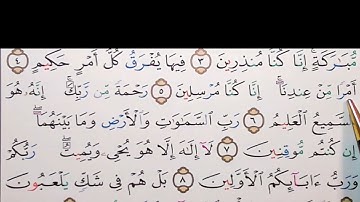 مُّبَٰرَكَةٍ ۚ إِنَّا كُنَّا مُنذِرِينَ ٣ فِيهَا يُفْرَقُ كُلُّ أَمْرٍ حَكِيمٍ ٤
أَمْرًا مِّنْ عِندِنَآ ۚ إِنَّا كُنَّا مُرْسِلِينَ ٥ رَحْمَةً مِّن رَّبِّكَ ۚ إِنَّهُۥ هُوَ
ٱلسَّمِيعُ ٱلْعَلِيمُ ٦ رَبِّ ٱلسَّمَٰوَٰتِ وَٱلْأَرْضِ وَمَا بَيْنَهُمَآ ۖ
إِن كُنتُم مُّوقِنِينَ ٧ لَآ إِلَٰهَ إِلَّا هُوَ يُحْىِۦ وَيُمِيتُ ۖ رَبُّكُمْ
وَرَبُّ ءَابَآئِكُمُ ٱلْأَوَّلِينَ ٨ بَلْ هُمْ فِى شَكٍّ يَلْعَبُونَ